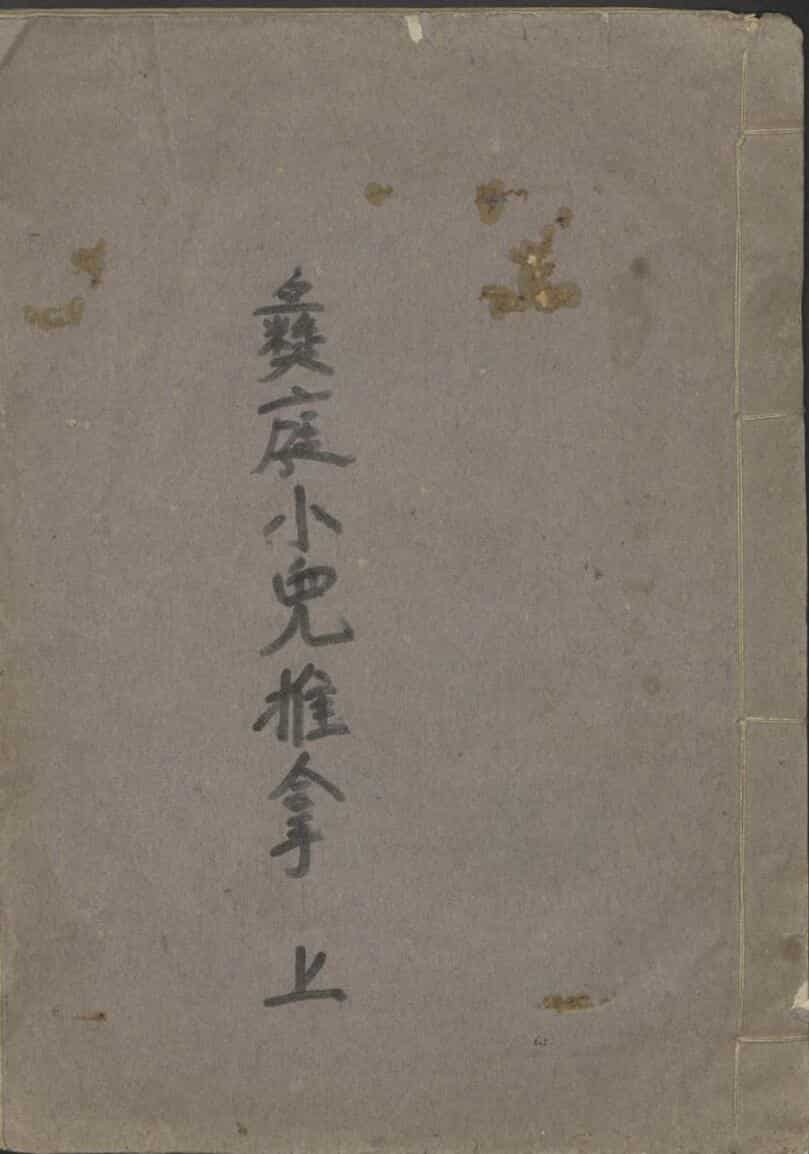 彝庭小兒推拿 上